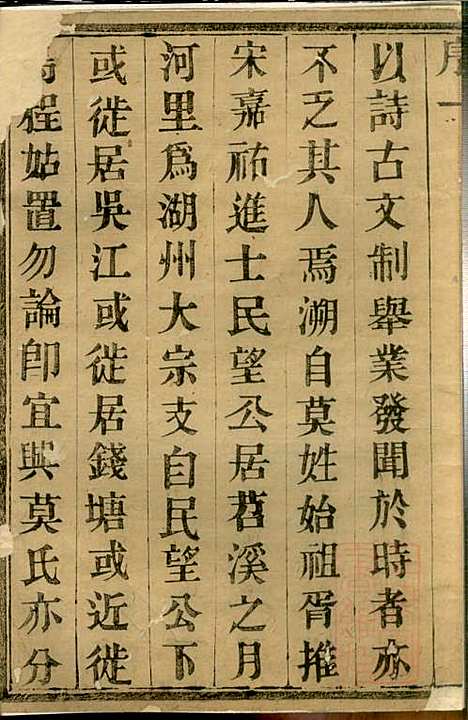 序一
以詩古文制舉業發聞於時者亦
不乏其人焉溯自莫姓始祖胥推
宋嘉祐進士民望公居苕溪之月
河里爲湖州大宗支自民望公下
或徙居吳江或徙居錢塘或近徙
程姑置勿論卽宜與莫氏亦分